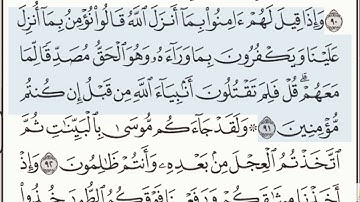 ٩٠ وَإِذَا قِيلَ لَهُمْ ءَامِنُوا۟ بِمَآ أَنزَلَ ٱللَّهُ قَالُوا۟ نُؤْمِنُ بِمَآ أُنزِلَ
عَلَيْنَا وَيَكْفُرُونَ بِمَا وَرَآءَهُۥ وَهُوَ ٱلْحَقُّ مُصَدِّقًا لِّمَا
مَعَهُمْ ۗ قُلْ فَلِمَ تَقْتُلُونَ أَنۢبِيَآءَ ٱللَّهِ مِن قَبْلُ إِن كُنتُم
مُّؤْمِنِينَ ٩١ ۞ وَلَقَدْ جَآءَكُم مُّوسَىٰ بِٱلْبَيِّنَٰتِ ثُمَّ
ٱتَّخَذْتُمُ ٱلْعِجْلَ مِنۢ بَعْدِهِۦ وَأَنتُمْ ظَٰلِمُونَ ٩٢ وَإِذْ
أَخَذْنَا مِيثَٰقَكُمْ وَرَفَعْنَا فَوْقَكُمُ ٱلطُّورَ خُذُوا۟